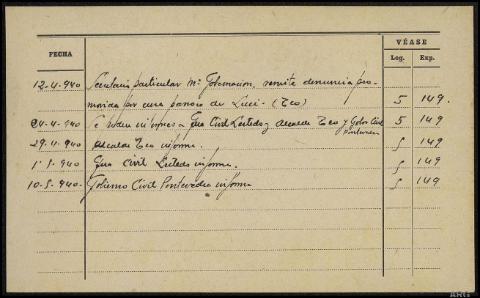 VÉASE
FECHA Leg. Exp.
12-4-940 Secretaria particular Mº Gobernación, remite denuncia pro-
movida por cura parroco de Luci - (Teo) 5 149.
24-4-940 Se piden informes a Gua Civil Lestedo, Alcalde Teo y Gobor Civil 5 149
Pontevedra
29-4-940 Alcalde Teo informa. 5 149
1-5-940 Gua Civil Lestedo informa. 5 149
10-5-940 Gobierno Civil Pontevedra informa 5 149